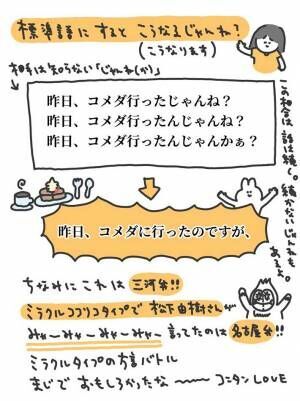 標準語にすると こうなるじゃんね?
(こうなります)
相手は知らない「じゃんね(か)」
昨日、コメダ行ったじゃんね?
昨日、コメダ行ったんじゃんね?
昨日、コメダ行ったんじゃんかぁ?
この場合は話は続く。続かないじゃんねも、あるよ。
昨日、コメダに行ったのですが、
ちなみにこれは三河弁!!
ミラクルココリコタイプで松下由樹さんが
みゃ〜みゃ〜みゃ〜みゃ〜言ってたのは名古屋弁!!
ミラクルタイプの方言バトル
まじでおもしろかったな〜〜〜コニタンLOVE